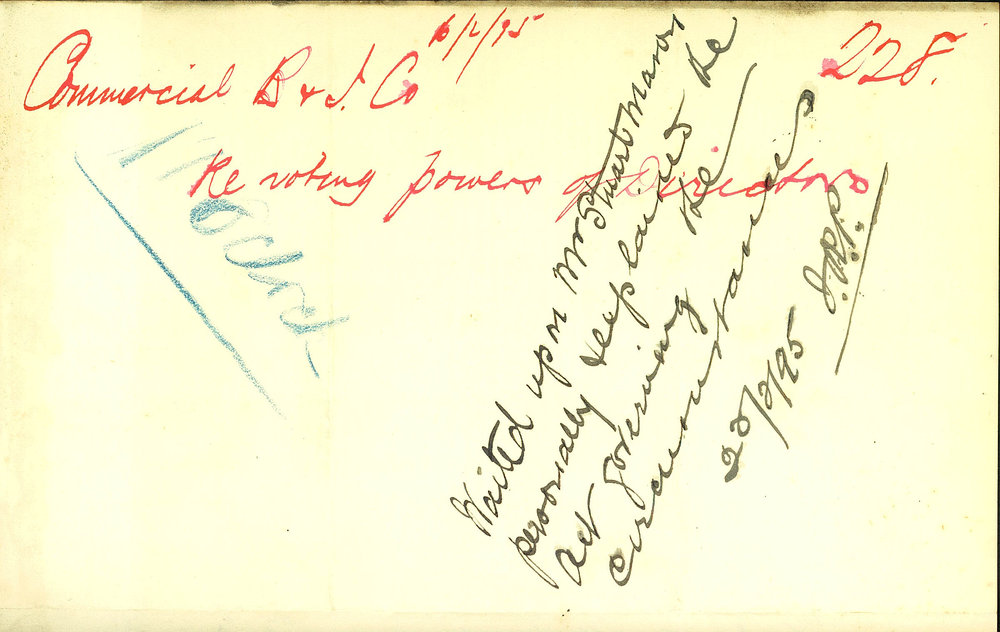 Commercial B & I. Co 16/2/95
228.
Re voting powers of Directors
Waited upon Mr Stuart Manor
personally & explained the
act governing the
circumstances
20/2/95 J.R.P.